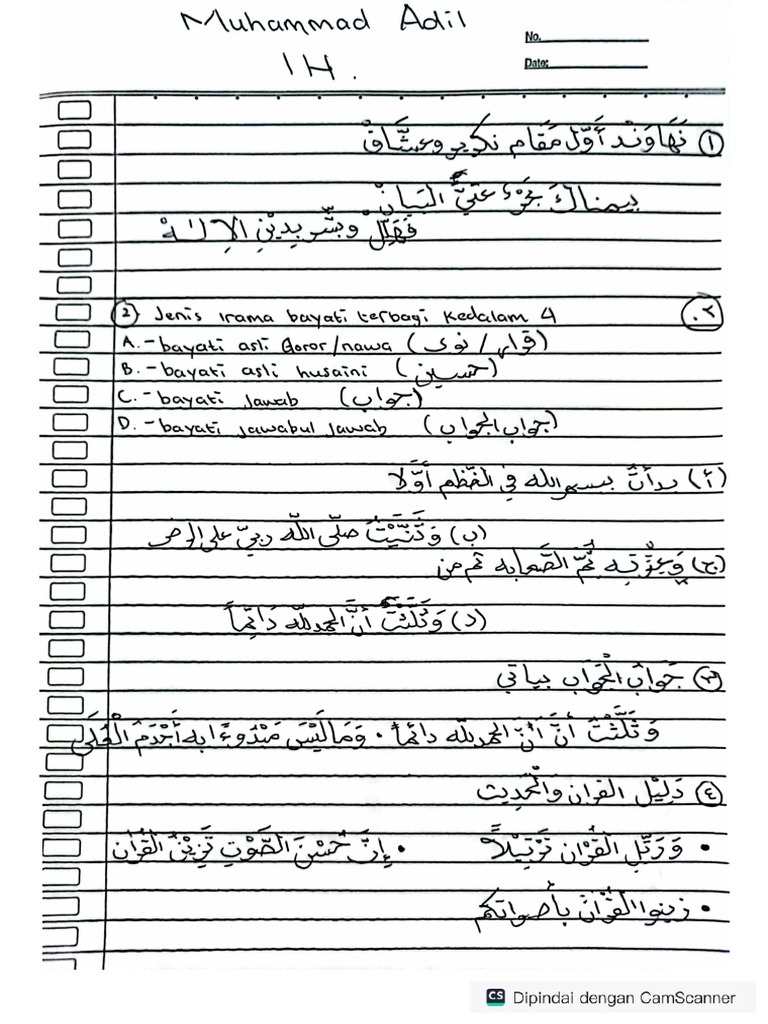 Muhammad Adil
1H.
No.
Date:
① نَهَاوَنْد أَوَّل مَقَام نكرير وعشَّاقْ
بيمناك
فَهَلِّلْ وبشّر بِدِيْنِ الإلٰهْ
② Jenis irama bayati terbagi kedalam 4
٢.
A. - bayati asli Qoror/nawa (قرار / نوى)
B. - bayati asli husaini (حسين)
C. - bayati Jawab (جواب)
D. - bayati Jawabul Jawab (جواب الجواب)
(أ) بدأتُ ببسم الله في النّظم أوّلا
(ب) وَثَنَّيْتُ صلّى اللّه ربّي على الرضى
(ج) وَعِتْرَتِه ثُمَّ الصَّحابه ثم من
(د) وَثَلَّثْتُ أَنَّ الحمد للّه دَائِماً
③ جَوَابُ الْجَوَاب بياتي
وَثَلَّثْتُ أَنَّ أَنَّ الحمد للّه دائماً • وَمَا لَيْسَ مَبْدُوءًا به أَجْذَمَ الْعُلَى
④ دَلِيْل القرآن وَالْحَدِيث
• وَرَتِّلِ الْقُرْآن تَرْتِيْلاً • إِنَّ حُسْنَ الصَّوْتِ تَزْيِيْنُ القُرْآن
• زينوا القُرْآنَ بأصواتكم
CS Dipindai dengan CamScanner